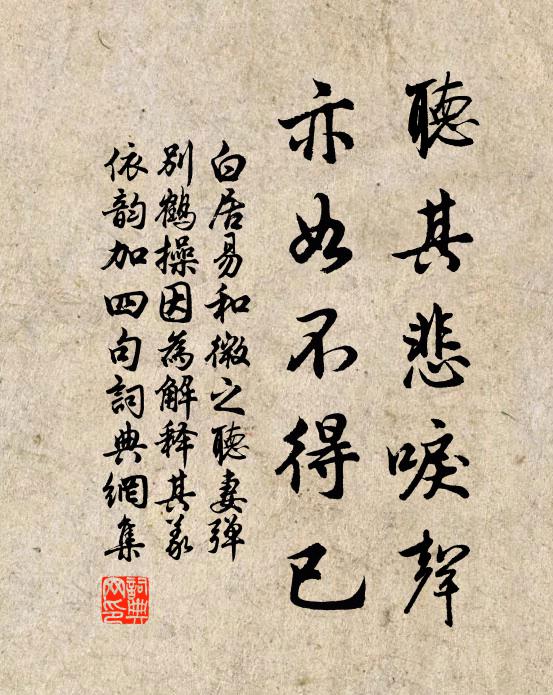 聽其悲唳聲
亦如不得已
白居易和微之聽妻弹
别鶴操因為解释其義
依韵加四句詞典網集
詞典網印